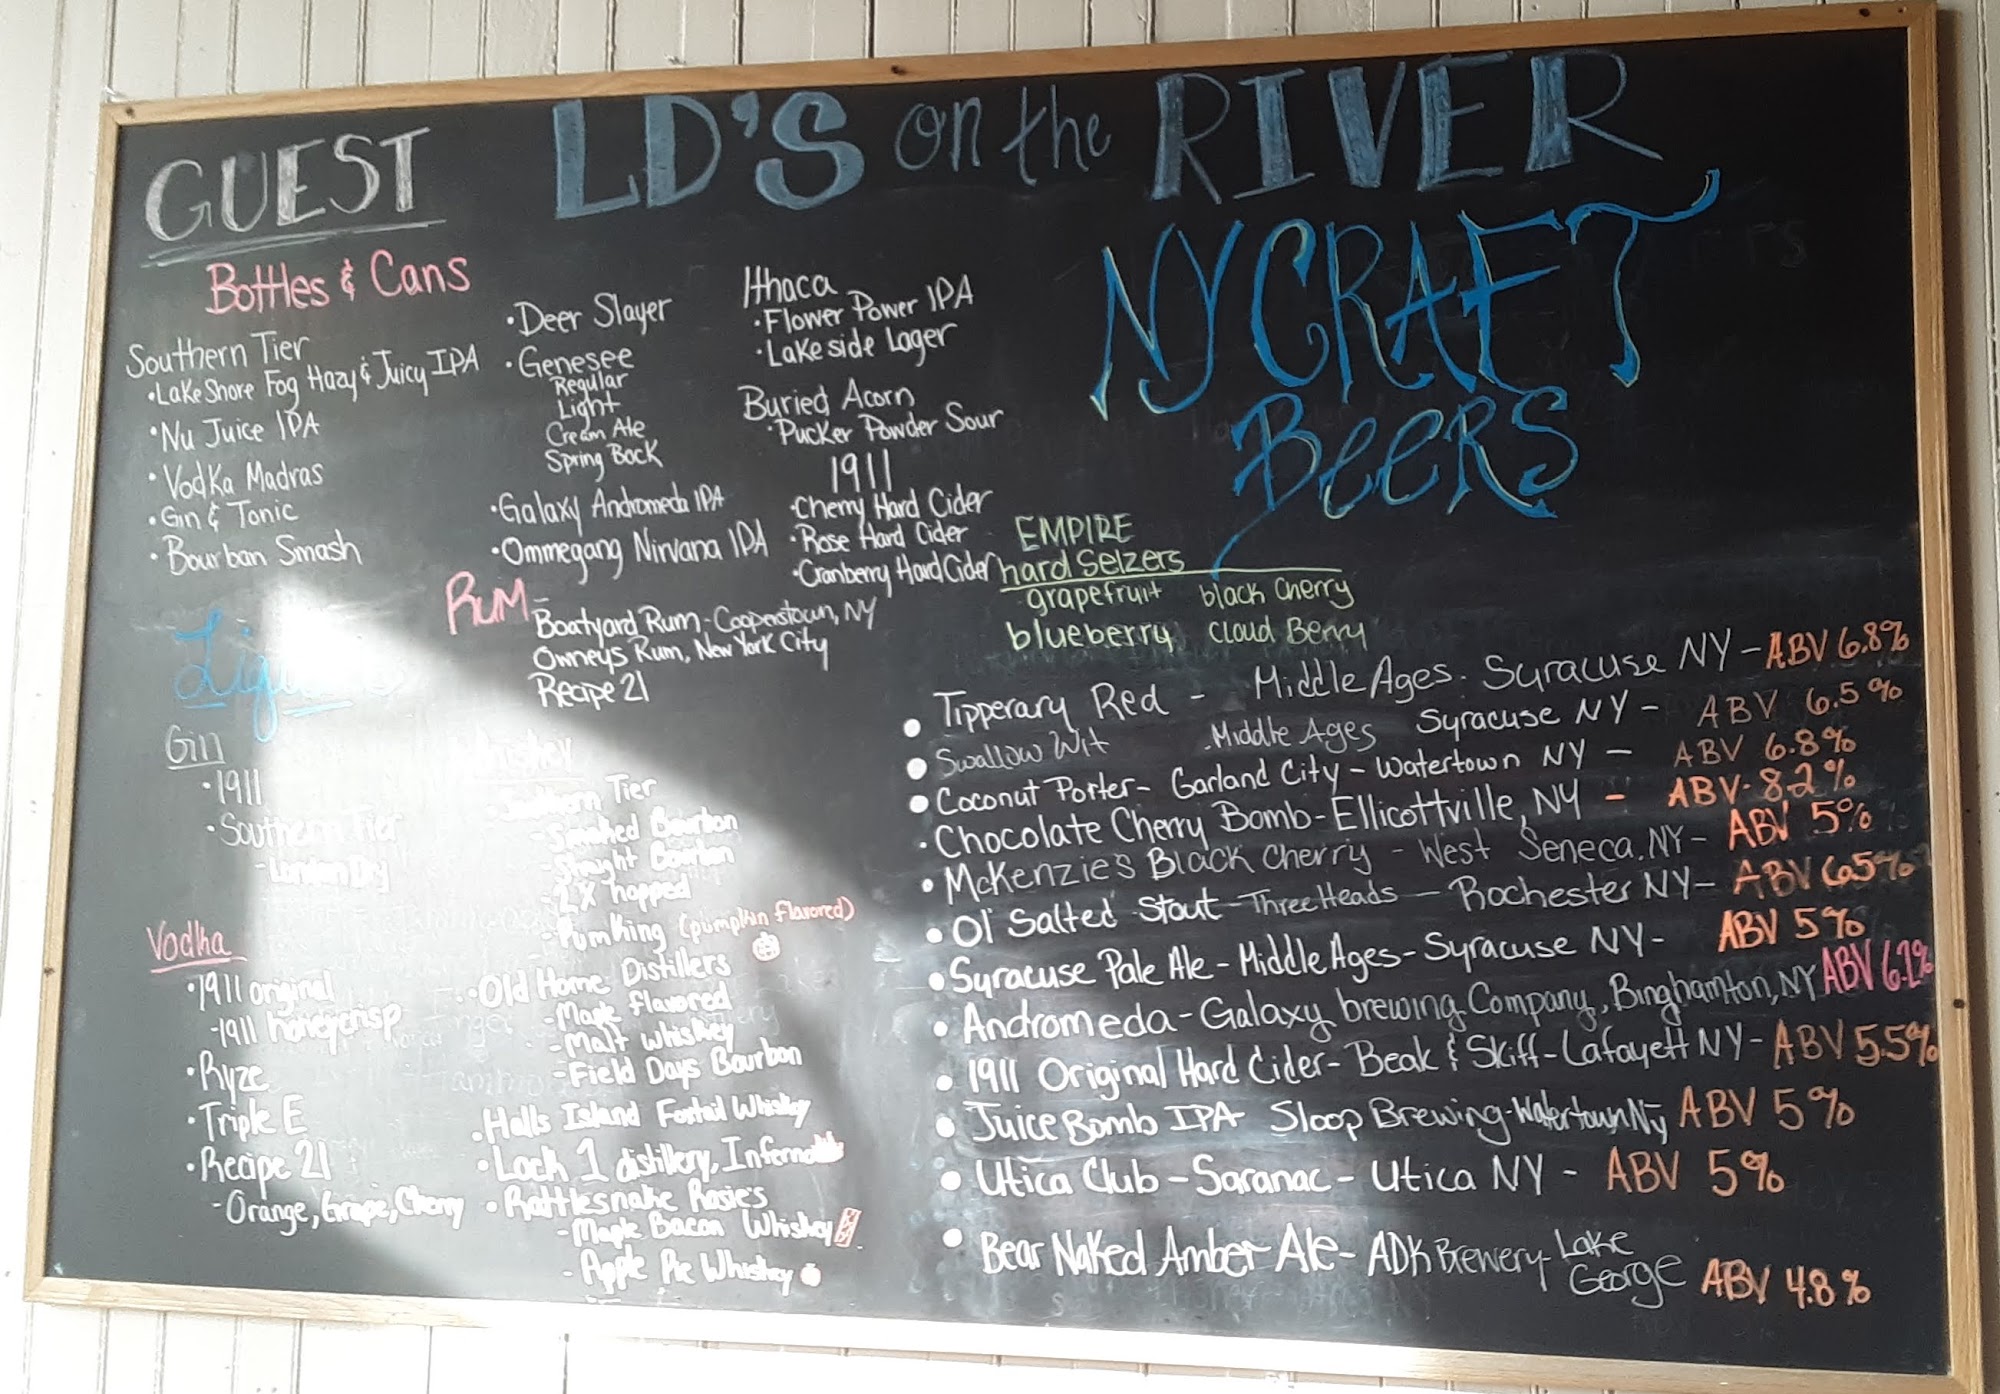 GUEST
LD'S on the RIVER
Bottles & Cans
Southern Tier
•Lake Shore Fog Hazy & Juicy IPA
•Nu Juice IPA
•Vodka Madras
•Gin & Tonic
•Bourban Smash
•Deer Slayer
•Genesee
Regular
Light
Cream Ale
Spring Bock
•Galaxy Andromeda IPA
•Ommegang Nirvana IPA
Ithaca
•Flower Power IPA
•Lakeside Lager
Buried Acorn
•Pucker Powder Sour
1911
•Cherry Hard Cider
•Rose Hard Cider
•Cranberry Hard Cider
RUM -
Boatyard Rum - Cooperstown, NY
Owneys Rum, New York City
Recipe 21
Gin
•1911
•Southern Tier
-London Dry
Vodka
•1911 original
-1911 honeycrisp
•Ryze
•Triple E
•Recipe 21
-Orange, Grape, Cherry
Whiskey
•Southern Tier
-Smoked Bourbon
-Straight Bourbon
-2X hopped
-Pumking (pumpkin flavored)
•Old Home Distillers
-Maple flavored
-Malt Whiskey
-Field Days Bourbon
•Halls Island Foxtail Whiskey
•Lock 1 distillery, Inferno
•Rattlesnake Rosie's
-Maple Bacon Whiskey
-Apple Pie Whiskey
NY CRAFT
BEERS
EMPIRE
hard Selzers
grapefruit black Cherry
blueberry Cloud Berry
•Tipperary Red - Middle Ages. Syracuse NY - ABV 6.8%
•Swallow Wit . Middle Ages Syracuse NY - ABV 6.5%
•Coconut Porter - Garland City - Watertown NY - ABV 6.8%
•Chocolate Cherry Bomb - Ellicottville, NY - ABV- 8.2%
•McKenzie's Black Cherry - West Seneca, NY - ABV 5%
•Ol' Salted Stout Three Heads - Rochester NY - ABV 6.5%
•Syracuse Pale Ale - Middle Ages - Syracuse NY - ABV 5%
•Andromeda - Galaxy brewing Company, Binghamton, NY ABV
•1911 Original Hard Cider - Beak & Skiff - Lafayett NY - ABV 5.5%
•Juice Bomb IPA Sloop Brewing - Watertown Ny ABV 5%
•Utica Club - Saranac - Utica NY - ABV 5%
•Bear Naked Amber Ale - ADK Brewery - Lake George ABV 4.8%